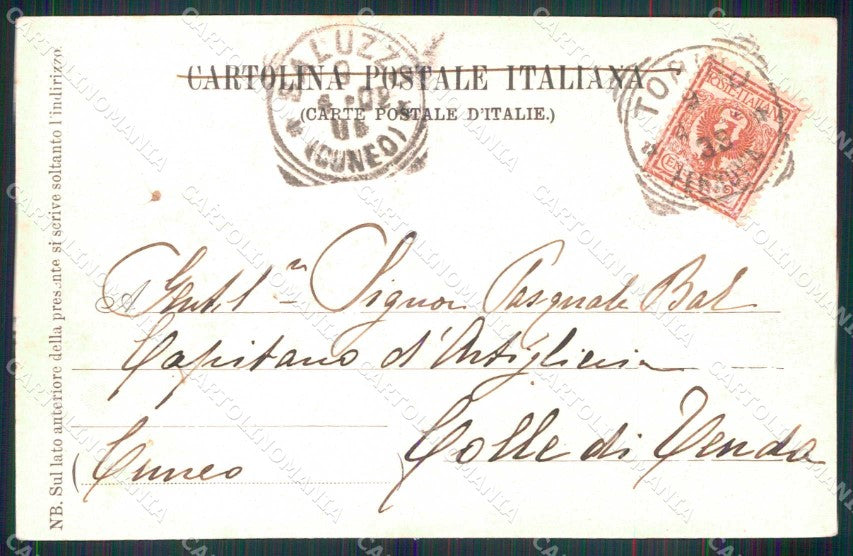 CARTOLINA POSTALE ITALIANA
(CARTE POSTALE D'ITALIE.)
SALUZZO
(CUNEO)
TORINO
FERROVIA
POSTE ITALIANE
NB. Sul lato anteriore della presente si scrive soltanto l'indirizzo.
A Gentil.m Signor Pasquale Bal
Capitano d'Artiglieria
Colle di Tenda
(Cuneo)
CARTOLINOMANIA